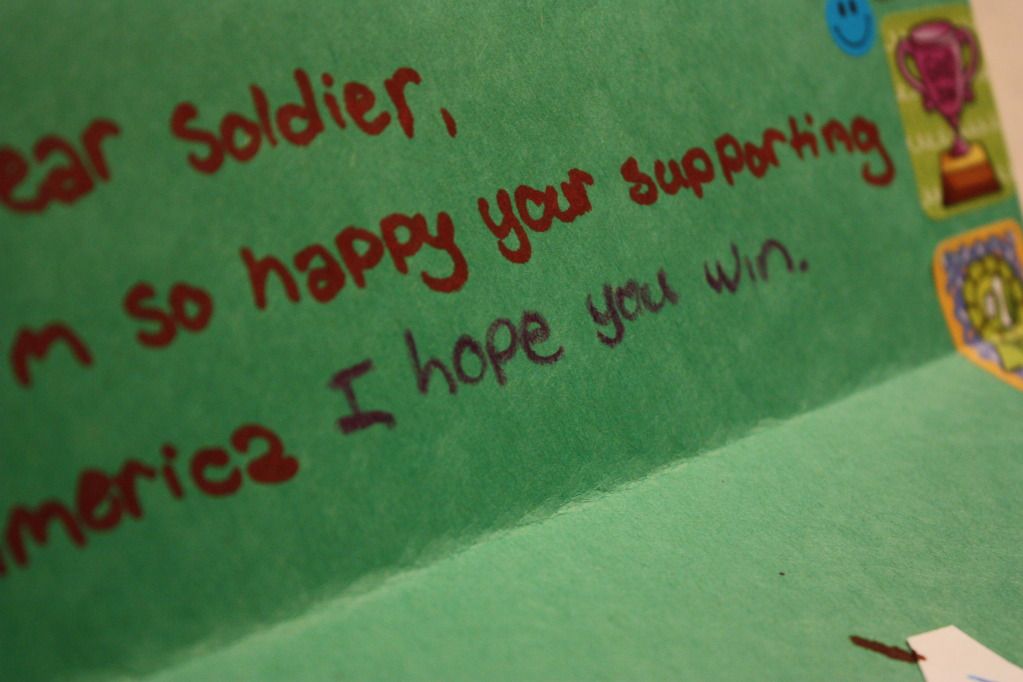 ear Soldier,
m so happy your supporting
merica I hope you win.
1